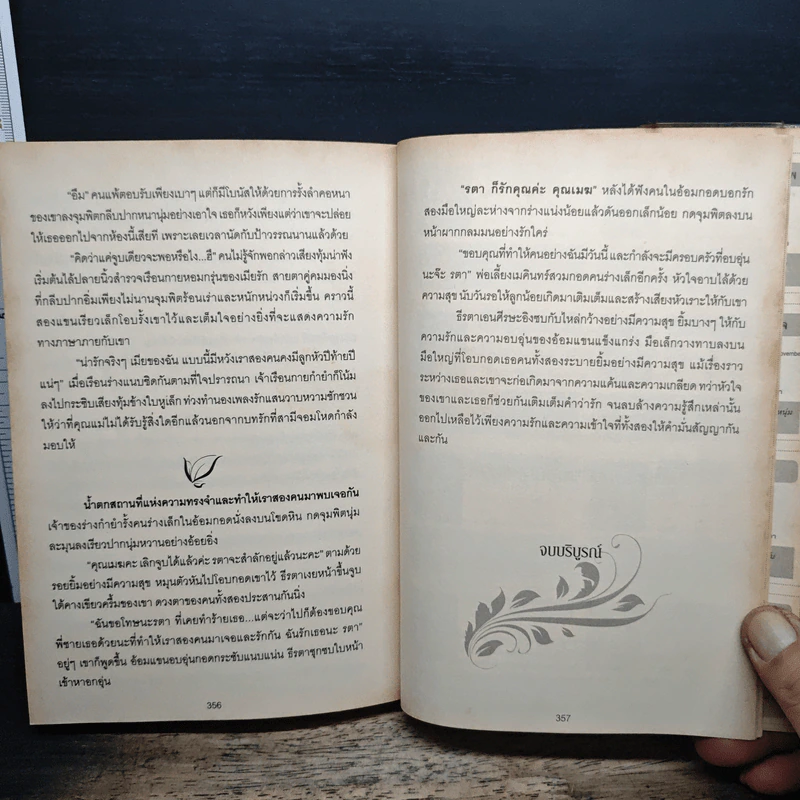 "อืม" คนแพ้ตอบรับเพียงเบาๆ แต่ก็มีโบนัสให้ด้วยการรั้งลำคอหนา
ของเขาลงจุมพิตกลีบปากหนานุ่มอย่างเอาใจ เธอก็หวังเพียงแต่ว่าเขาจะปล่อย
ให้เธอออกไปจากห้องนี้เสียที เพราะเลยเวลานัดกับป้าวรรณนานแล้วด้วย
"คิดว่าแค่จูบเดียวจะพอหรือไง...ฮึ" คนไม่รู้จักพอกล่าวเสียงทุ้มน่าฟัง
เริ่มต้นไล้ปลายนิ้วสำรวจเรือนกายหอมกรุ่นของเมียรัก สายตาคู่คมมองนิ่ง
ที่กลีบปากอิ่มเพียงไม่นานจุมพิตร้อนเร่าและหนักหน่วงก็เริ่มขึ้น คราวนี้
สองแขนเรียวเล็กโอบรั้งเขาไว้และเต็มใจอย่างยิ่งที่จะแสดงความรัก
ทางภาษากายกับเขา
"น่ารักจริงๆ เมียของฉัน แบบนี้มีหวังเราสองคนคงมีลูกหัวปีท้ายปี
แน่ๆ" เมื่อเรือนร่างแนบชิดกันตามที่ใจปรารถนา เจ้าเรือนกายกำยำก็โน้ม
ลงไปกระซิบเสียงทุ้มข้างใบหูเล็ก ท่วงทำนองเพลงรักแสนวาบหวามชักชวน
ให้ว่าที่คุณแม่ไม่ได้รับรู้สิ่งใดอีกแล้วนอกจากบทรักที่สามีจอมโหดกำลัง
มอบให้
น้ำตกสถานที่แห่งความทรงจำและทำให้เราสองคนมาพบเจอกัน
เจ้าของร่างกำยำรั้งคนร่างเล็กในอ้อมกอดนั่งลงบนโขดหิน กดจุมพิตนุ่ม
ละมุนลงเรียวปากนุ่มหวานอย่างอ้อยอิ่ง
"คุณเมฆคะ เลิกจูบได้แล้วค่ะ รตาจะสำลักอยู่แล้วนะคะ" ตามด้วย
รอยยิ้มอย่างมีความสุข หมุนตัวหันไปโอบกอดเขาไว้ ธีรตาเงยหน้าขึ้นจูบ
ใต้คางเขียวครึ้มของเขา ดวงตาของคนทั้งสองประสานกันนิ่ง
"ฉันขอโทษนะรตา ที่เคยทำร้ายเธอ...แต่จะว่าไปก็ต้องขอบคุณ
พี่ชายเธอด้วยนะที่ทำให้เราสองคนมาเจอและรักกัน ฉันรักเธอนะ รตา"
อยู่ๆ เขาก็พูดขึ้น อ้อมแขนอบอุ่นกอดกระชับแนบแน่น ธีรตาซุกซบใบหน้า
เข้าหาอกอุ่น
356
"รตา ก็รักคุณค่ะ คุณเมฆ" หลังได้ฟังคนในอ้อมกอดบอกรัก
สองมือใหญ่ละห่างจากร่างแน่งน้อยแล้วดันออกเล็กน้อย กดจุมพิตลงบน
หน้าผากกลมมนอย่างรักใคร่
"ขอบคุณที่ทำให้คนอย่างฉันมีวันนี้ และกำลังจะมีครอบครัวที่อบอุ่น
นะจ๊ะ รตา" พ่อเลี้ยงเมคินทร์สวมกอดคนร่างเล็กอีกครั้ง หัวใจอาบไล้ด้วย
ความสุข นับวันรอให้ลูกน้อยเกิดมาเติมเต็มและสร้างเสียงหัวเราะให้กับเขา
ธีรตาเอนศีรษะอิงซบกับไหล่กว้างอย่างมีความสุข ยิ้มบางๆ ให้กับ
ความรักและความอบอุ่นของอ้อมแขนแข็งแกร่ง มือเล็กวางทาบลงบน
มือใหญ่ที่โอบกอดเธอคนทั้งสองระบายยิ้มอย่างมีความสุข แม้เรื่องราว
ระหว่างเธอและเขาจะก่อเกิดมาจากความแค้นและความเกลียด ทว่าหัวใจ
ของเขาและเธอก็ช่วยกันเติมเต็มคำว่ารัก จนลบล้างความรู้สึกเหล่านั้น
ออกไปเหลือไว้เพียงความรักและความเข้าใจที่ทั้งสองให้คำมั่นสัญญากัน
และกัน
จบบริบูรณ์
357